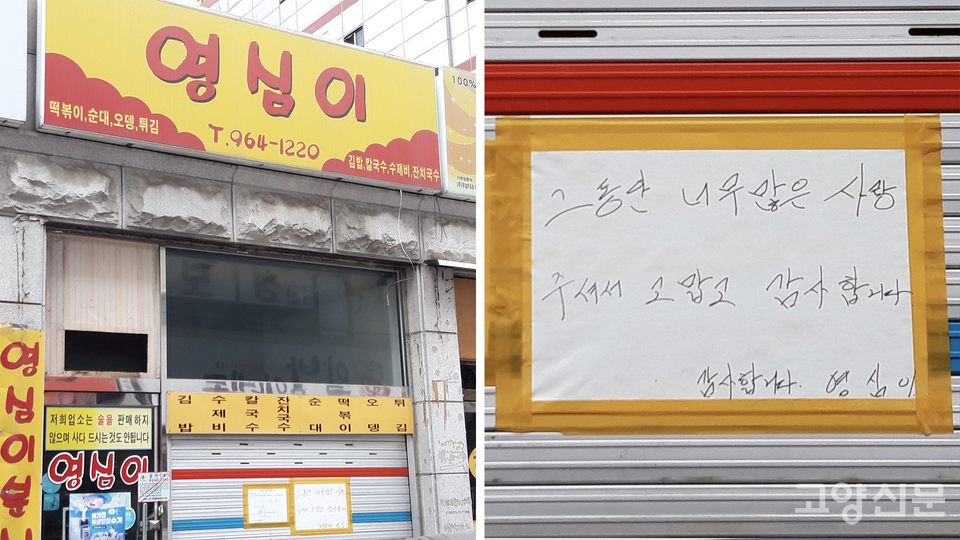 영심이
떡볶이,순대,오뎅,튀김
T.964-1220
김밥,칼국수,수제비,잔치국수
100%
영심이분식
저희업소는 술을 판매하지
않으며 사다 드시는것도 안됩니다
영심이
김밥 수제비 칼국수 잔치국수 순대 떡볶이 오뎅 튀김
그동안 너무 많은 사랑
주셔서 고맙고 감사합니다
감사합니다. 영심이
고양신문